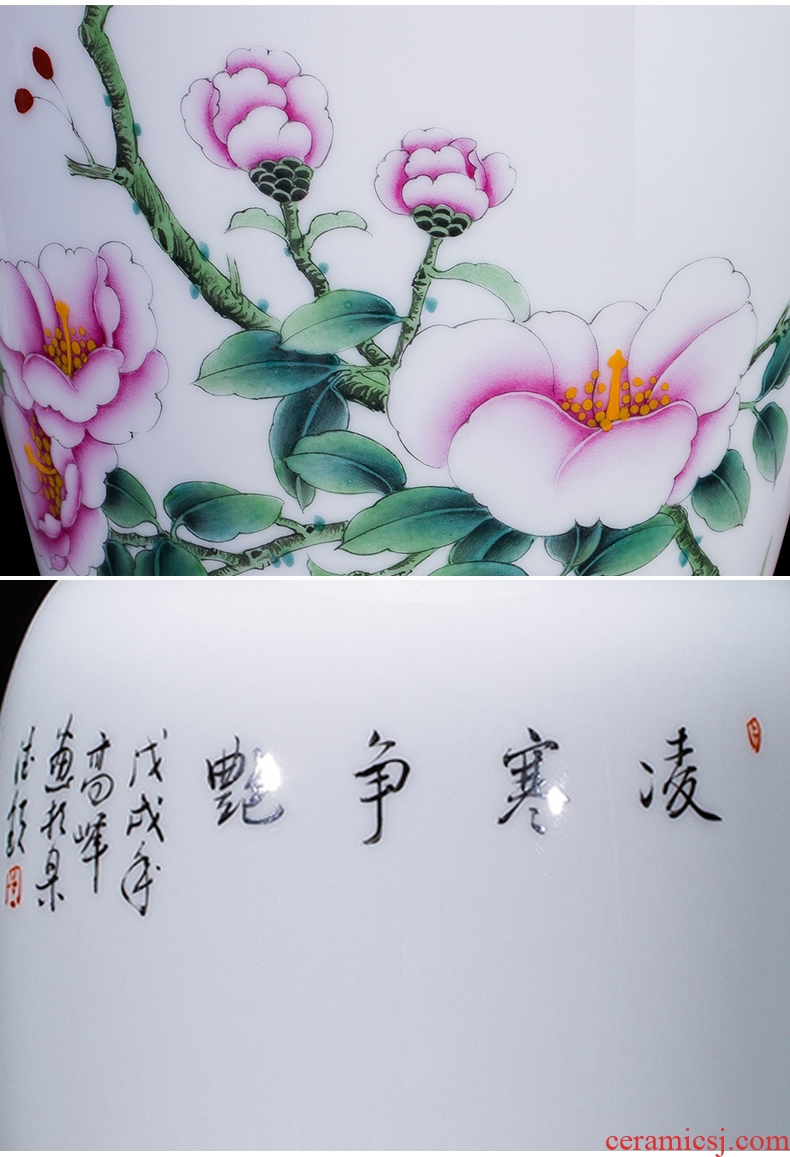 凌寒争艳
戊戌年
高峰
画於景
德镇
ceramicsj.com